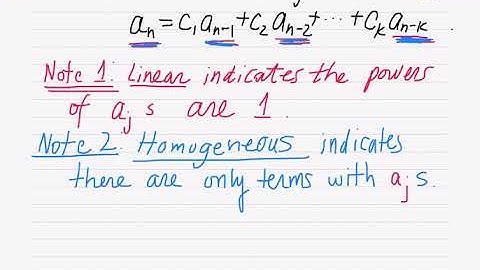 aₙ = c₁aₙ₋₁ + c₂aₙ₋₂ + ⋯ + cₖaₙ₋ₖ.
Note 1: Linear indicates the powers
of aⱼ s are 1.
Note 2. Homogeneous indicates
there are only terms with aⱼ s.